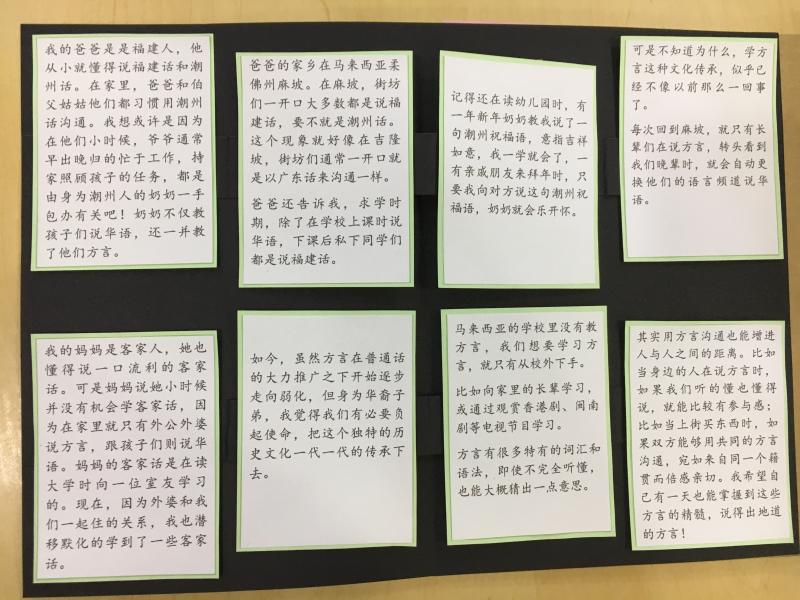 我的爸爸是是福建人，他
从小就懂得说福建话和潮
州话。在家里，爸爸和伯
父姑姑他们都习惯用潮州
话沟通。我想或许是因为
在他们小时候，爷爷通常
早出晚归的忙于工作，持
家照顾孩子的任务，都是
由身为潮州人的奶奶一手
包办有关吧！奶奶不仅教
孩子们说华语，还一并教
了他们方言。
爸爸的家乡在马来西亚柔
佛州麻坡。在麻坡，街坊
们一开口大多数都是说福
建话，要不就是潮州话。
这个现象就好像在吉隆
坡，街坊们通常一开口就
是以广东话来沟通一样。
爸爸还告诉我，求学时
期，除了在学校上课时说
华语，下课后私下同学们
都是说福建话。
记得还在读幼儿园时，有
一年新年奶奶教我说了一
句潮州祝福语，意指吉祥
如意，我一学就会了，一
有亲戚朋友来拜年时，只
要我向对方说这句潮州祝
福语，奶奶就会乐开怀。
可是不知道为什么，学方
言这种文化传承，似乎已
经不像以前那么一回事
了。
每次回到麻坡，就只有长
辈们在说方言，转头看到
我们晚辈时，就会自动更
换他们的语言频道说华
语。
我的妈妈是客家人，她也
懂得说一口流利的客家
话。可是妈妈说她小时候
并没有机会学客家话，因
为在家里就只有外公外婆
说方言，跟孩子们则说华
语。妈妈的客家话是在读
大学时向一位室友学习
的。现在，因为外婆和我
们一起住的关系，我也潜
移默化的学到了一些客家
话。
如今，虽然方言在普通话
的大力推广之下开始逐步
走向弱化，但身为华裔子
弟，我觉得我们有必要负
起使命，把这个独特的历
史文化一代一代的传承下
去。
马来西亚的学校里没有教
方言，我们想要学习方
言，就只有从校外下手。
比如向家里的长辈学习，
或通过观赏香港剧、闽南
剧等电视节目学习。
方言有很多特有的词汇和
语法，即使不完全听懂，
也能大概猜出一点意思。
其实用方言沟通也能增进
人与人之间的距离。比如
当身边的人在说方言时，
如果我们听的懂也懂得
说，就能比较有参与感；
比如当上街买东西时，如
果双方能够用共同的方言
沟通，宛如来自同一个籍
贯而倍感亲切。我希望自
己有一天也能掌握到这些
方言的精髓，说得出地道
的方言！